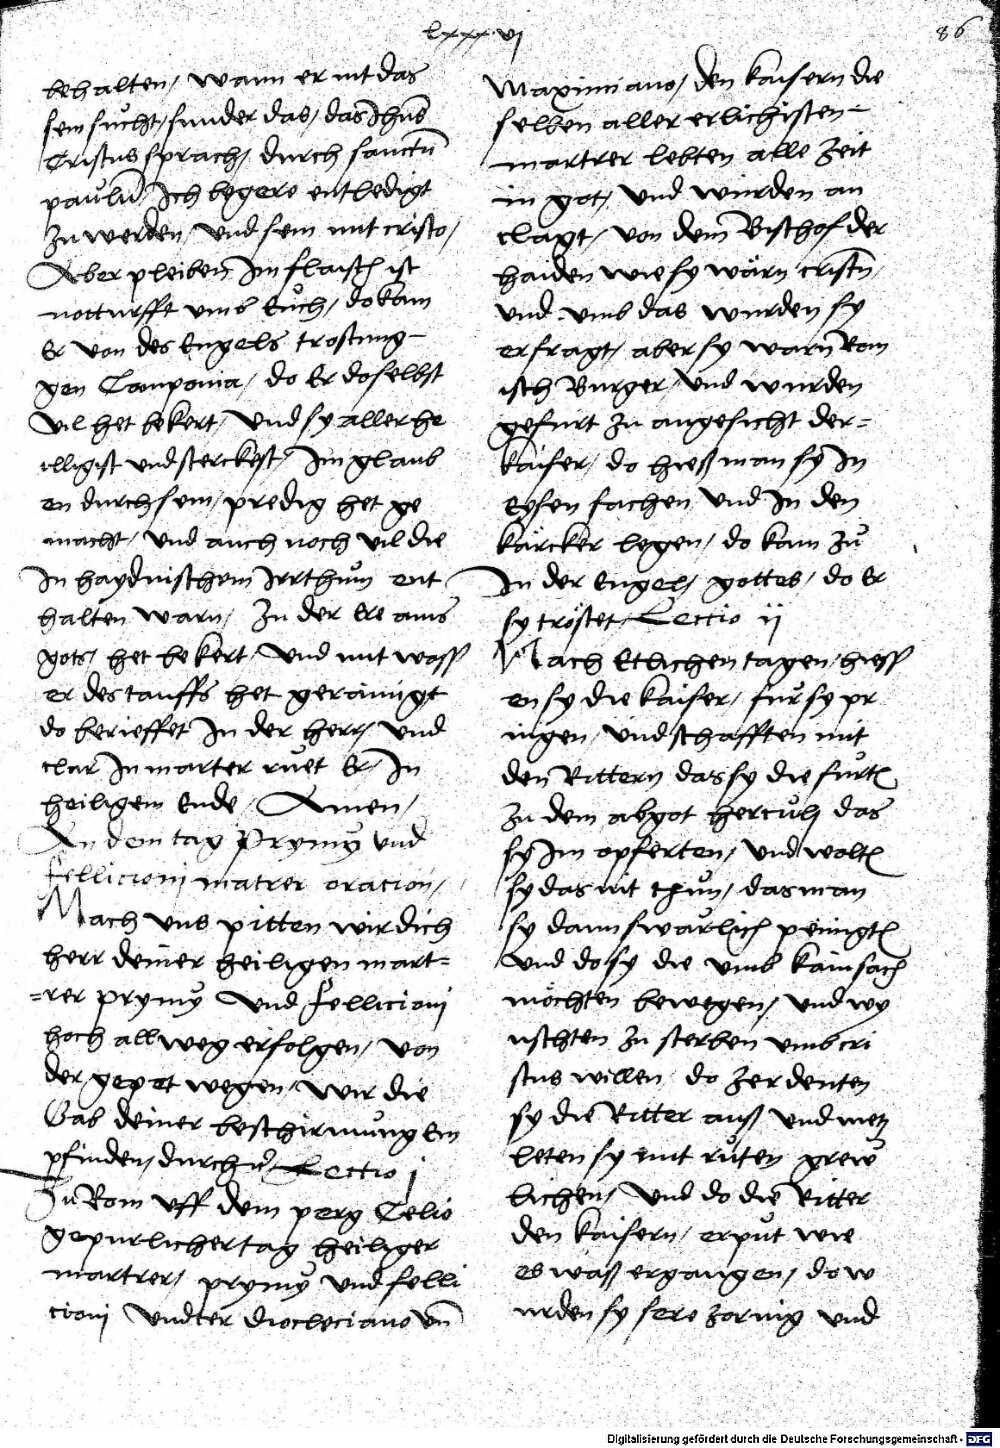 lxxxvj
86
behalten / wann er nit das
sein sücht / sunder das / das Jhūs
Cristus sprach / durch sanctū
paulū / Ich begere entledigt
zu werden / und sein mit cristo /
Aber pleiben Im flaisch ist
notturfft umb Euch / do kam
Er von des Engels trostung
gen Campania / do Er doselbst
vil het bekert / und sy aller he
illigist und sterckest / Im glaub
en durch sein / predig het ge
macht / und auch noch vil die
In haydnischem Irrthum ent
halten warn / zu der Ere ains
gots / het bekert / und mit wass
er des tauffs het gerainigt
do berieffet In der herr / und
clar In marter ruet Er / In
heiligem Ende / Amen /
An dem tag Prymy und
Fellicioni matrer oracion /
Mach uns pitten wir dich
herr deiner heiligen mart=
=rer prymy und Fellicioni
hoch all weg erfolgen / von
der gepet wegen / wir die
Gab deiner beschirmung Em
pfinden / durch Lectio j
Zu Rom uff dem perg Celio
gepurlicher tag heiliger
martrer / prymy und felli
cioni undter diocleciano vn̄
Maximiano / den kaisern die
selben aller erlichisten
martrer lebten alle zeit
in got / und wurden an
clagt / von dem Bischof der
haiden wie sy wärn cristn̄ /
und umb das wurden sy
erfragt / aber sy warn Rom
isch Burger / und wurden
gefurt zu angesicht der=
kaiser / do hieß man sy In
Eysen fachen und In den
kärcker legen / do kam zu
In der Engel / gottes / do Er
sy tröstet / Lectio ij
Nach Etlichen tagen / hiess
en sy die kaiser / für sy pr
ingen / und schafften mit
den Rittern das sy die furtn
zu dem abgot herculj das
sy Im opferten / und woltn
sy das nit thun / das man
sy dann swärlich peinigtn
und do sy die umb kain sach
möchten bewegen / und wy
nschten zu sterben umb cri
stus willen do zerdenten
sy die Ritter auß und metz
leten sy mit ruten grew
lichen / und do die Ritter
den kaisern / erput wie
es waß ergangen / do w
urden sy sere zornig und
Digitalisierung gefördert durch die Deutsche Forschungsgemeinschaft - DFG